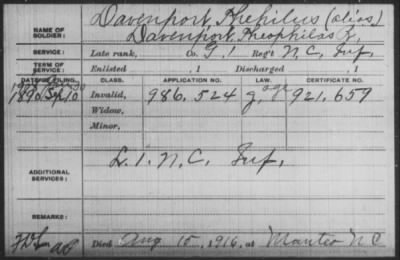 Davenport, Thephilus (alias)
NAME OF SOLDIER: Davenport, Theophilas R,
SERVICE: Late rank, Co. G, 1 Reg't N.C. Inf.
TERM OF SERVICE: Enlisted , 1 Discharged , 1
DATE OF FILING. CLASS. APPLICATION NO. LAW. CERTIFICATE NO.
1890 Sep 10 Invalid, 986.524 g. age 921.659
Widow,
Minor,
ADDITIONAL SERVICES: L. 1. N.C. Inf.
REMARKS:
Died Aug 15, 1916, at Manteo N C